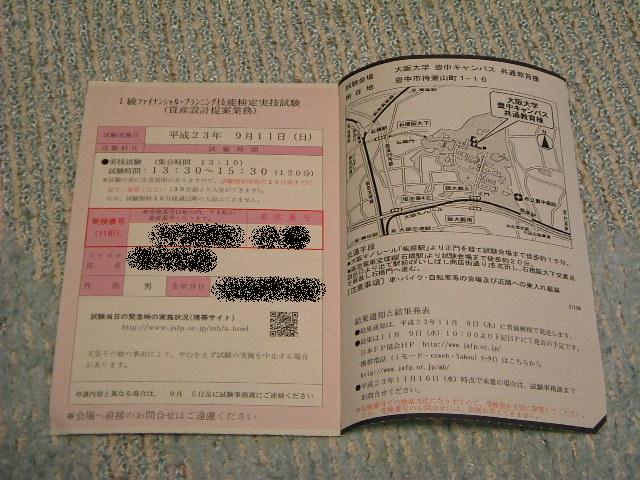 1級ファイナンシャル・プランニング技能検定実技試験
(資産設計提案業務)
試験実施日 平成23年 9月11日(日)
試験科目 試験時間
●実技試験 (集合時間 13:10)
試験時間:13:30~15:30(120分)
受検番号
(11桁)
座席番号
フリガナ
氏名
性別 男 生年月日
試験当日の緊急時の実施状況(携帯サイト)
http://www.jafp.or.jp/mb/s.html
天災その他の事由により、やむをえず試験の実施を中止する場合
があります。
申請内容と異なる場合は、9月 5日迄に試験事務課にご連絡ください
※会場へ直接のお問合せはご遠慮ください
試験会場 大阪大学 豊中キャンパス 共通教育棟
所在地 豊中市待兼山町1-16
大阪大学
豊中キャンパス
共通教育棟
N
石橋阪大下
石橋門
大阪モノレール
交通手段
●大阪モノレール「柴原駅」より正門を経て試験会場まで徒歩約15分。
[注意事項]車・バイク・自転車等の会場及び近隣への乗入れ厳禁
結果通知と結果発表
●結果通知は、平成23年11月 9日(水)に普通郵便で発送します。
●結果は11月 9日(水)10:00より下記HPにて発表の予定です。
日本FP協会HP http://www.jafp.or.jp/
携帯電話(iモード・ezweb・Yahoo!ケータイ)はこちらから
http://www.jafp.or.jp/mb/
●平成23年11月16日(水)時点で未着の場合は、試験事務課まで
お問合せください。